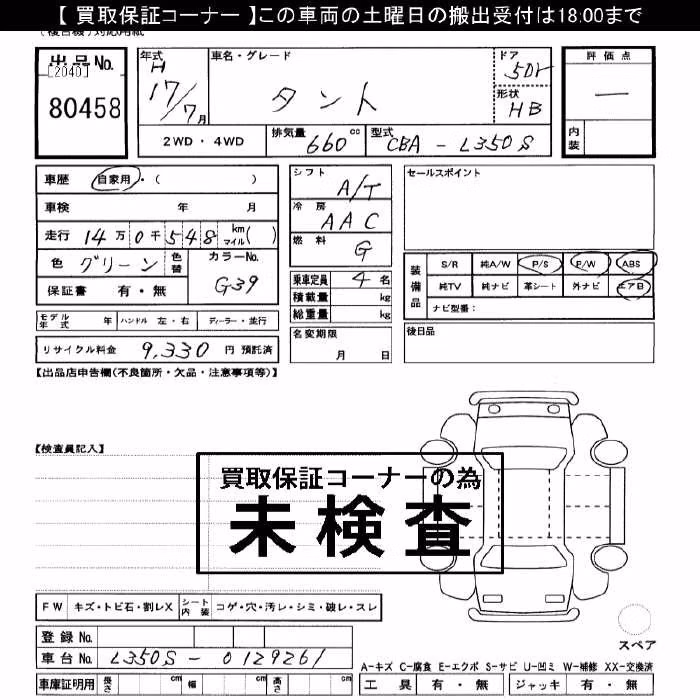 【 買取保証コーナー 】この車両の土曜日の搬出受付は18:00まで
出品No.
[2040]
80458
年式 H 17/7月
車名・グレード タント
ドア 5Dr
形状 HB
評価点 —
内装
2WD・4WD 排気量 660cc 型式 CBA - L350S
車歴 自家用・( )
車検 年 月
走行 14万0千548 km マイル( )
色 グリーン 色替 カラーNo. G39
保証書 有・無
モデル年式 年 ハンドル 左・右 ディーラー・並行
リサイクル料金 9,330 円 預託済
シフト A/T
冷房 AAC
燃料 G
乗車定員 4 名
積載量 kg
総重量 kg
名変期限 月 日
セールスポイント
装備品
S/R 純A/W P/S P/W ABS
純TV 純ナビ 革シート 外ナビ エアB
ナビ型番:
後日品
【出品店申告欄(不良箇所・欠品・注意事項等)】
【検査員記入】
買取保証コーナーの為
未検査
FW キズ・トビ石・割レX シート内装 コゲ・穴・汚レ・シミ・破レ・スレ
登録No.
車台No. L350S - 0129261
車庫証明用 長さ cm 幅 cm 高さ cm
スペア
A-キズ C-腐食 E-エクボ S-サビ U-凹ミ W-補修 XX-交換済
工具 有・無 ジャッキ 有・無